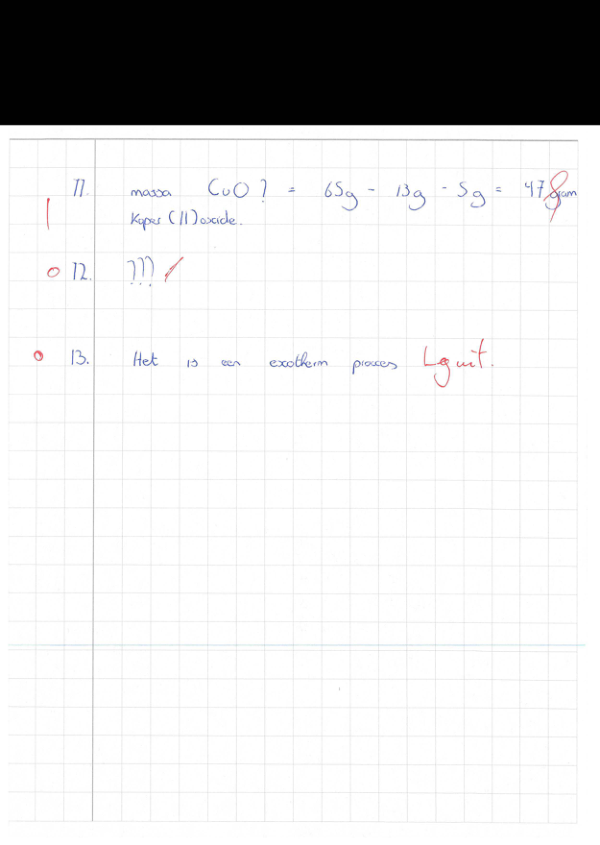 11. massa CuO? = 65g - 13g - 5g = 47 gram
| Koper(II)oxide.
0 12. ???
0 13. Het is een exotherm proces Leg uit.